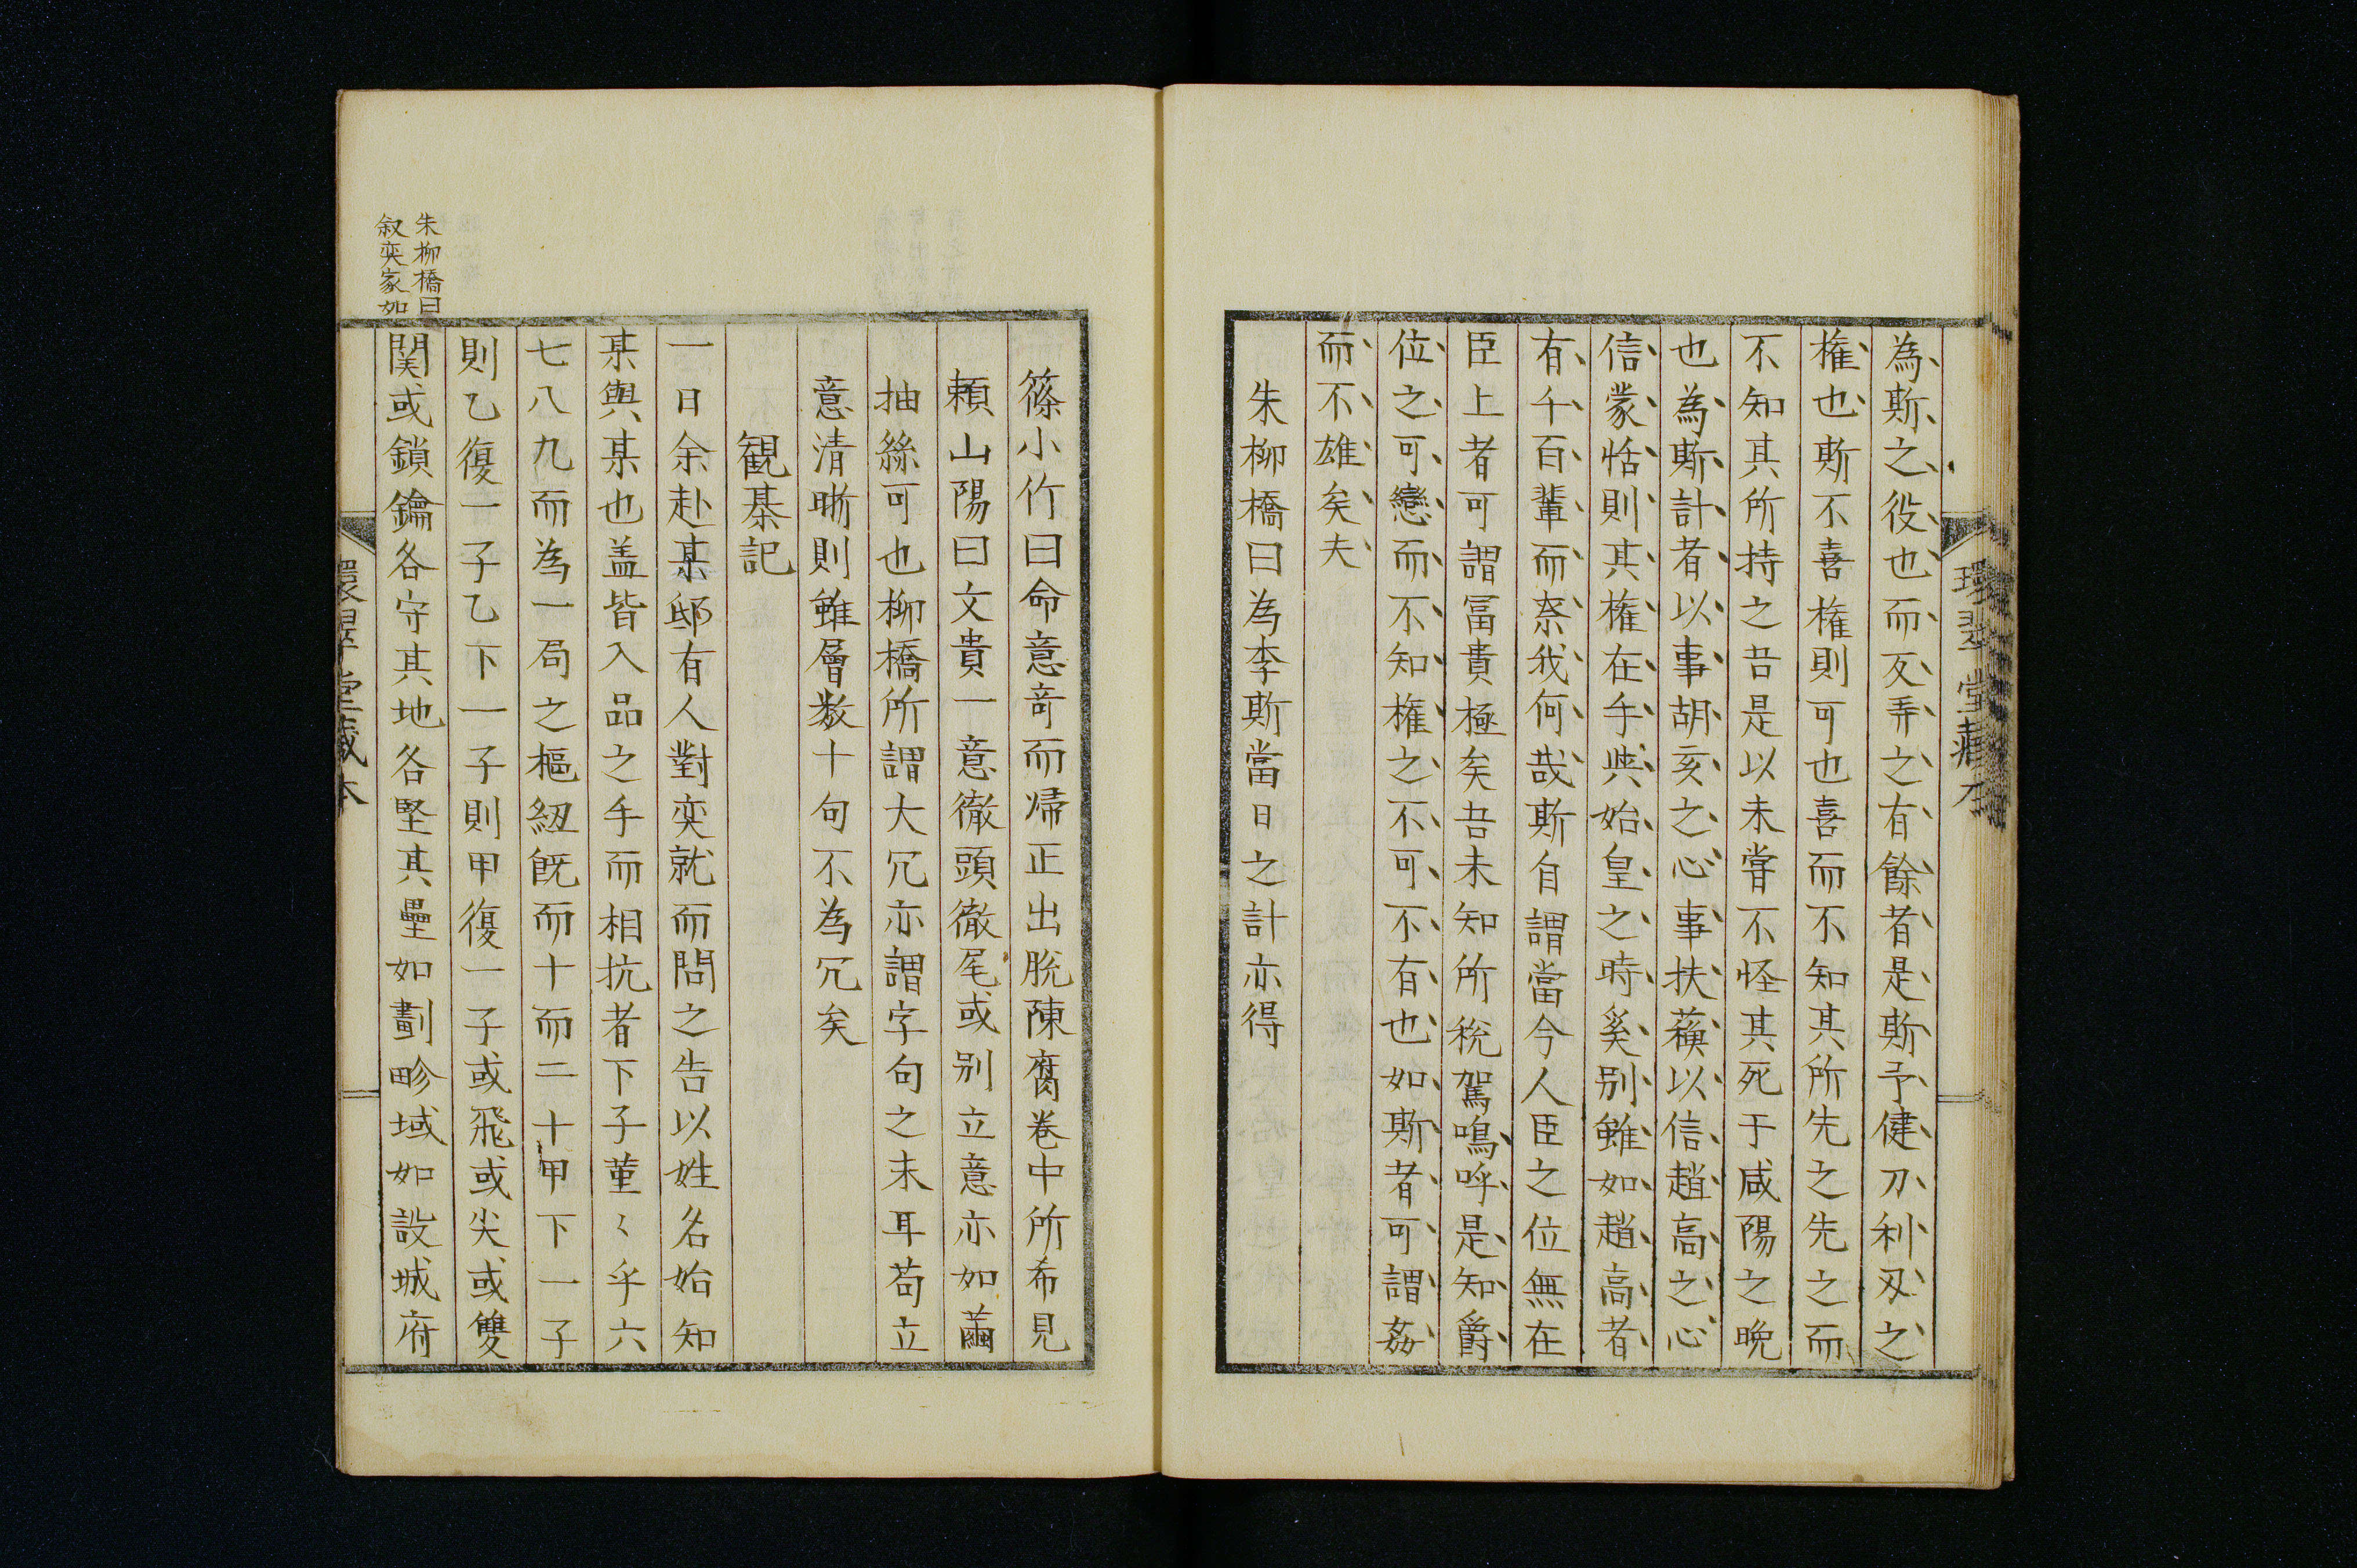 為斯之役也而反弄之有餘者是斯予健刀利刃之
権也斯不喜権則可也喜而不知其所先之先之而
不知其所持之吾是以未甞不怪其死于咸陽之晩
也為斯計者以事胡亥之心事扶蘓以信趙高之心
信蒙恬則其権在手與始皇之時奚别雖如趙高者
有千百輩而奈我何哉斯自謂當今人臣之位無在
臣上者可謂冨貴極矣吾未知所税駕嗚呼是知爵
位之可戀而不知権之不可不有也如斯者可謂姦
而不雄矣夫
朱柳橋曰為李斯當日之計亦得
環翠堂藏本
篠小竹曰命意竒而帰正出脱陳腐巻中所希見
頼山陽曰文貴一意徹頭徹尾或别立意亦如繭
抽絲可也柳橋所謂大冗亦謂字句之末耳苟立
意清晰則雖層数十句不為冗矣
観棊記
一日余赴某邸有人對奕就而問之告以姓名始知
某與某也盖皆入品之手而相抗者下子董〻乎六
七八九而為一局之樞紐既而十而二十甲下一子
則乙復一子乙下一子則甲復一子或飛或尖或雙
関或鎖鑰各守其地各堅其壘如劃畛域如設城府
朱柳橋曰
叙奕家如
環翠堂藏本